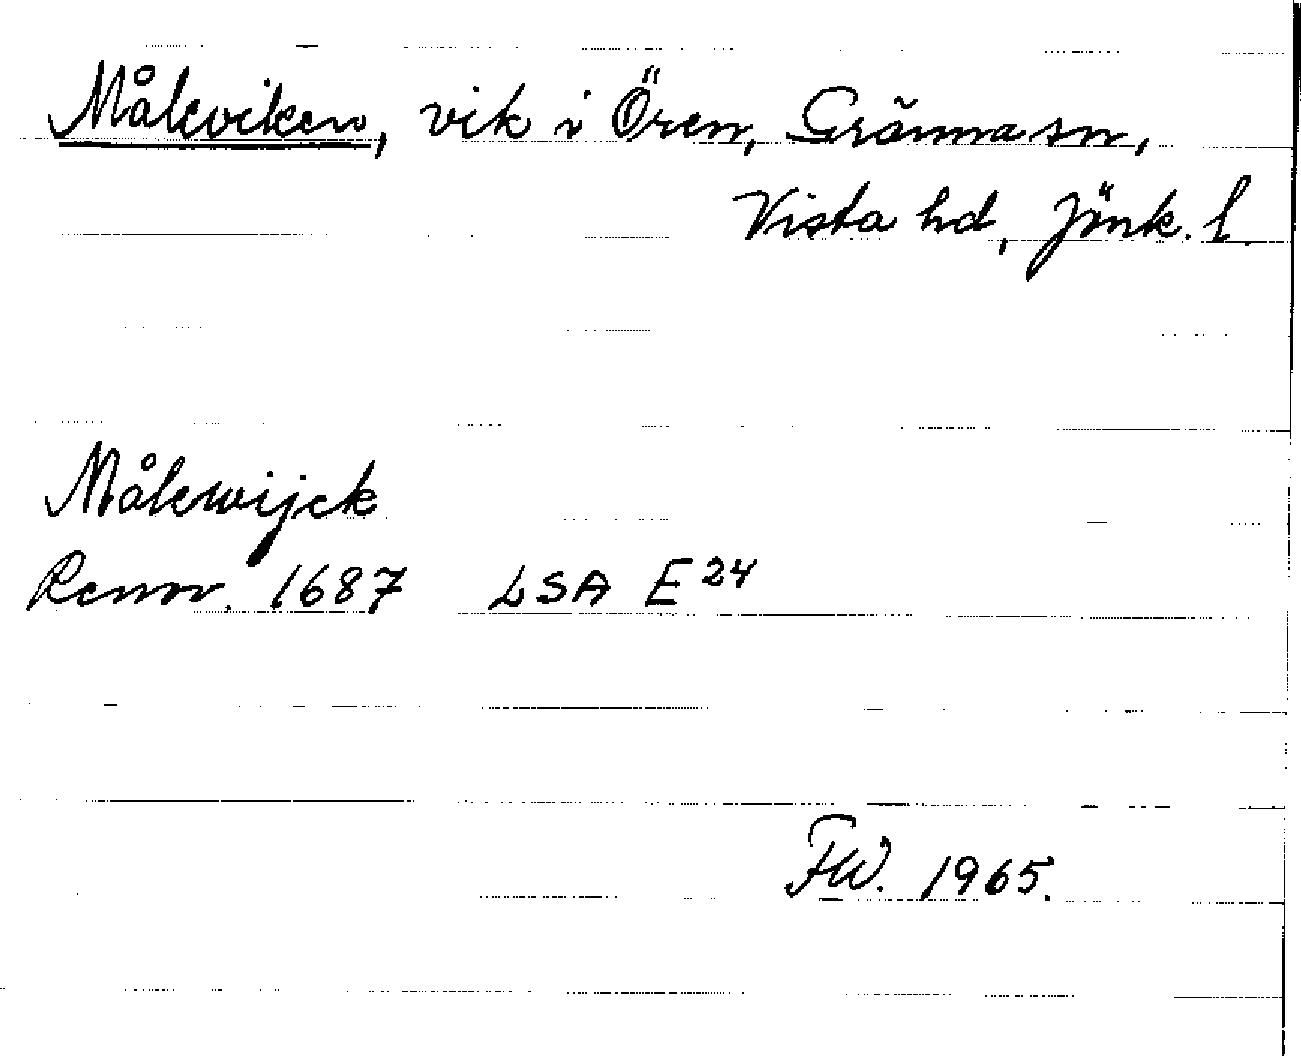 Måleviken, vik i Ören, Gränna sn,
Vista hd, Jönk. l.
Målewijck
Renov. 1687 LSA E 24
FW. 1965.